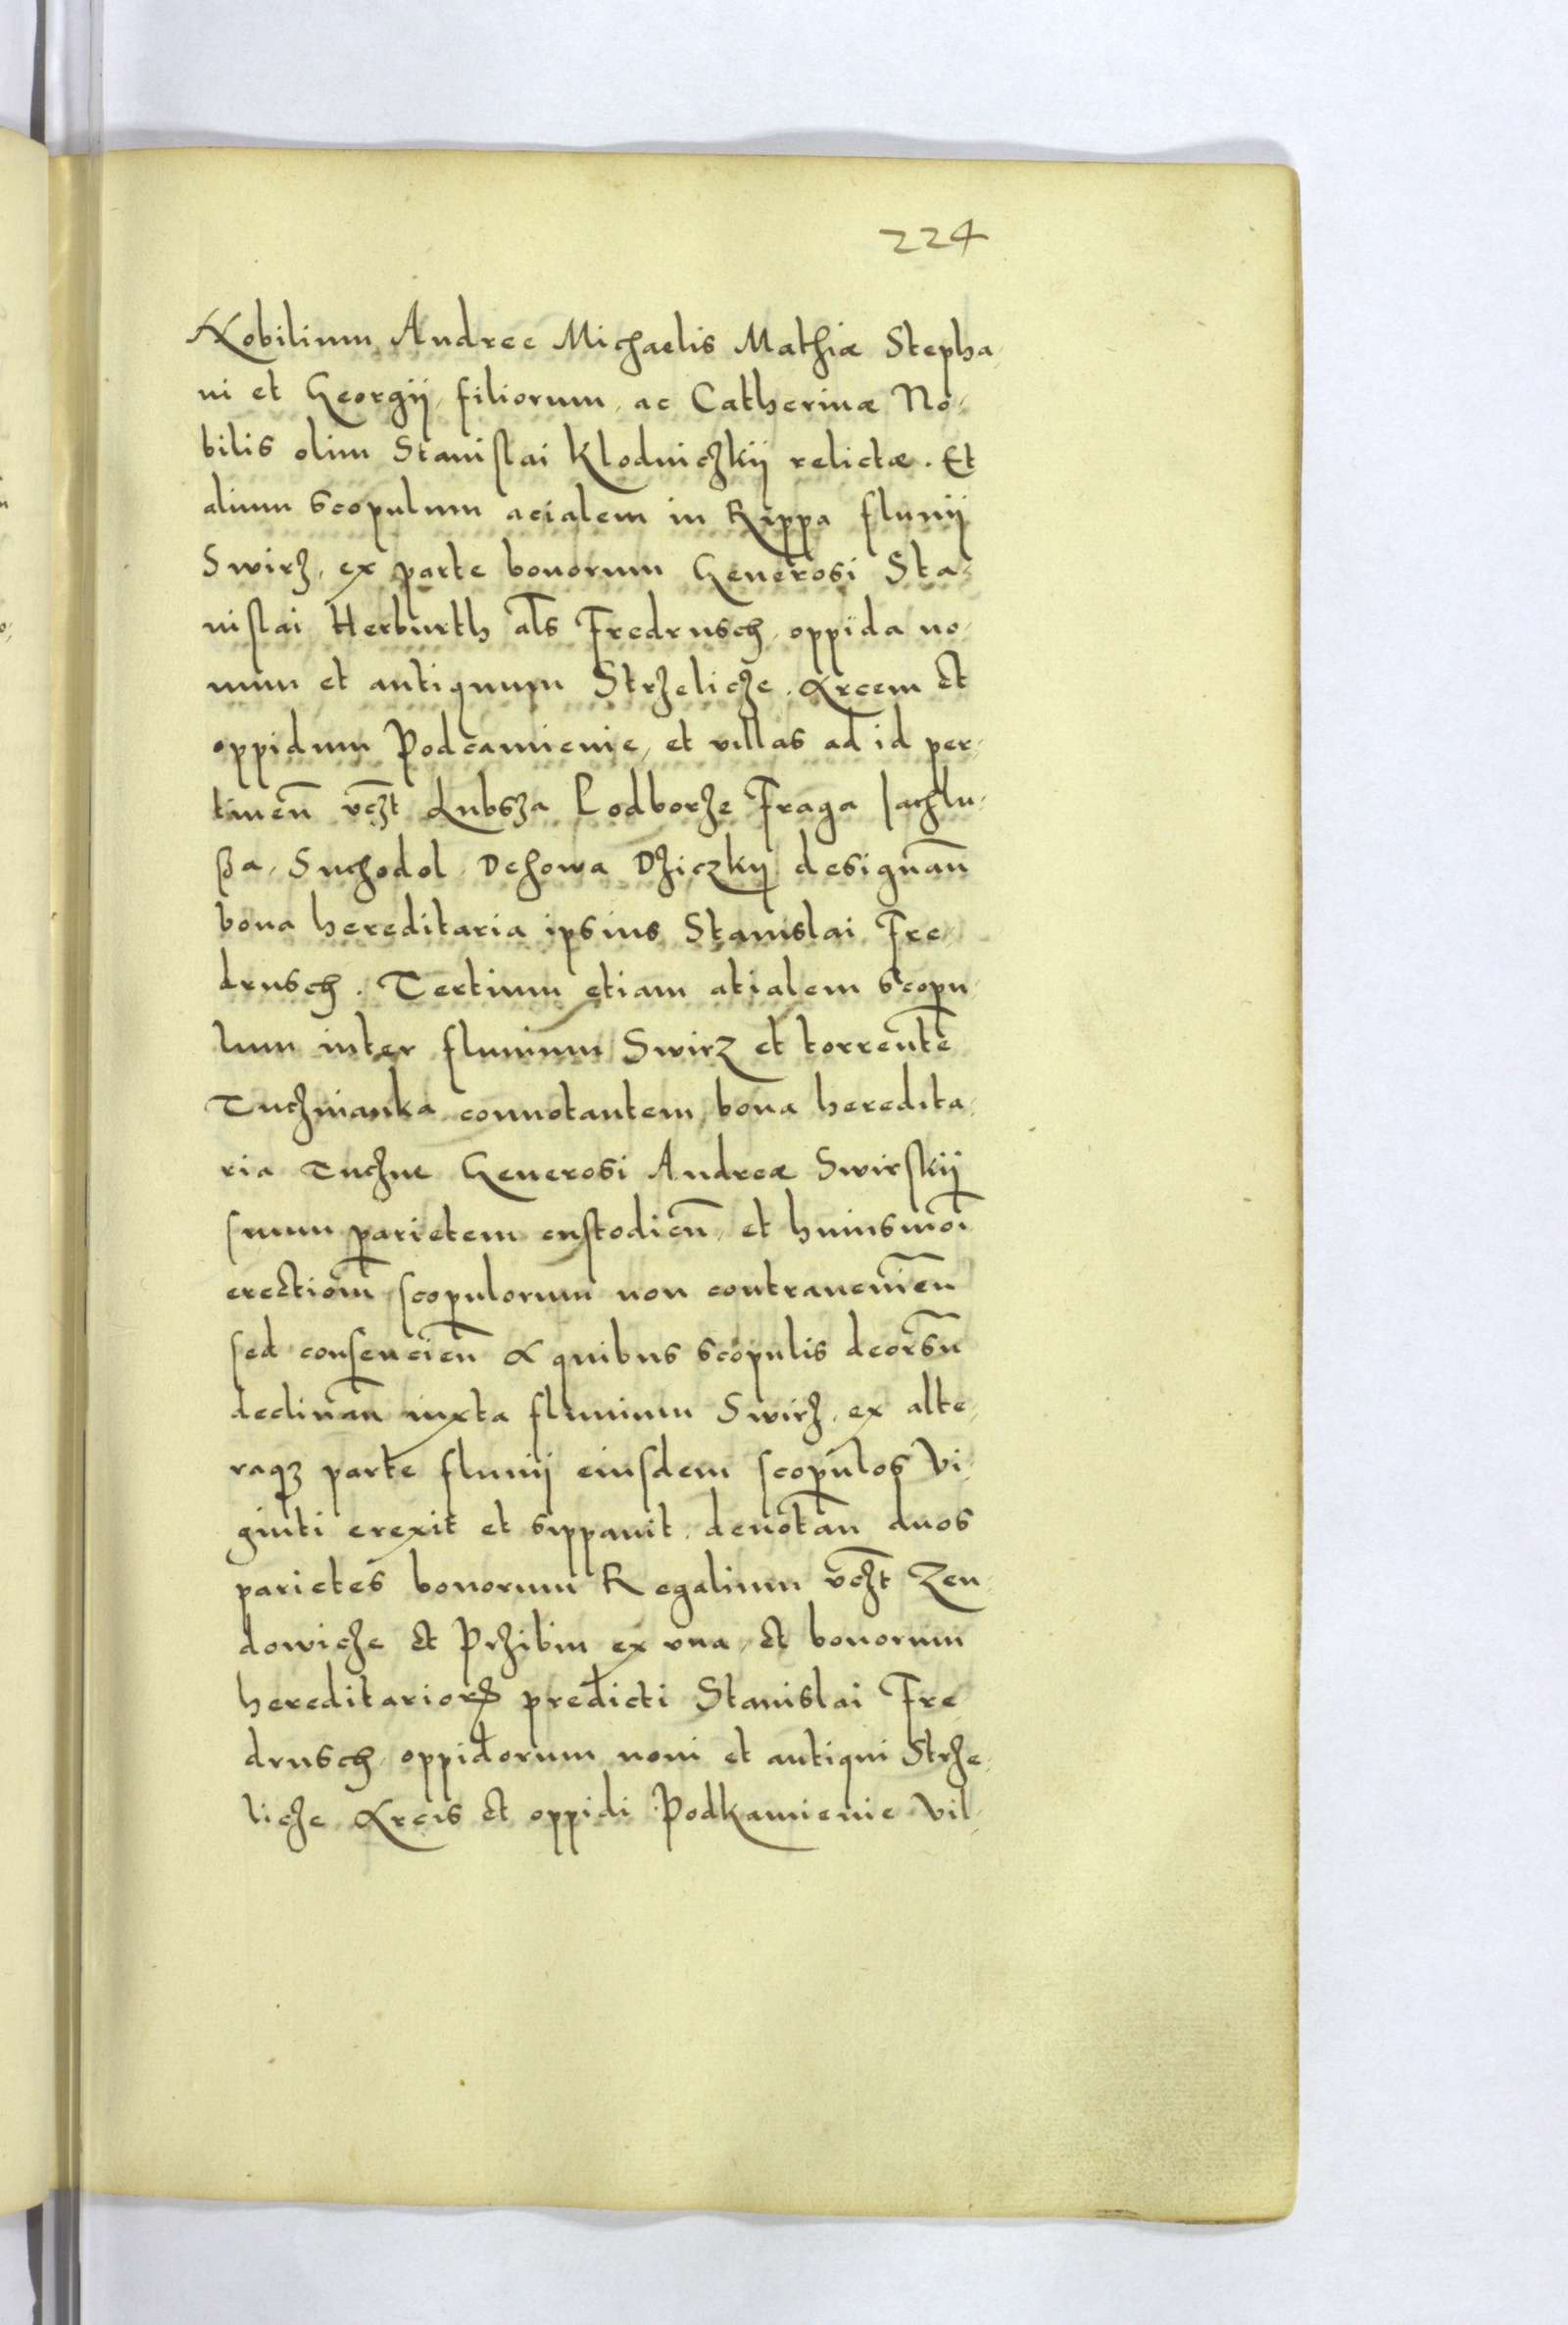 224
Nobilium Andree Michaelis Mathiæ Stepha-
ni et Georgÿ, filiorum, ac Catherinæ No-
bilis olim Stanislai Klodniczkÿ relictæ. Et
alium scopulum acialem in Rippa fluuÿ
Swirz, ex parte bonorum Generosi Sta-
nislai Herburth als̄ Fredrusch, oppida no-
uum et antiquum Strzelicze. Arcem et
oppidum Podcamienie, et villas ad id per-
tineñ vcz̄t Lubsza Podborze Fraga
Suchodol Dehowa Dziczkÿ designañ
bona hereditaria ipsius Stanislai Fre-
drusch. Tertium etiam atialem scopu-
lum inter fluuium Swirz et torrentē
Tucznianka connotantem, bona heredita-
ria Tuczne Generosi Andreæ Swirskÿ
suum parietem custodieñ, et huiusmōi
erectiōm scopulorum non contraueniēn
sed consencieñ A quibus scopulis deorsū
declinañ iuxta fluuium Swirz, ex alte-
raqȝ parte fluuÿ eiusdem scopulos Vi-
ginti erexit et sippauit, denotañ duos
parietes bonorum Regalium vcz̄t Zen-
dowicze et Przibin ex vna, et bonorum
hereditarioꝝ predicti Stanislai Fre-
drusch oppidorum noui et antiqui Strze-
licze Arcis et oppidi Podkamienie Vil-